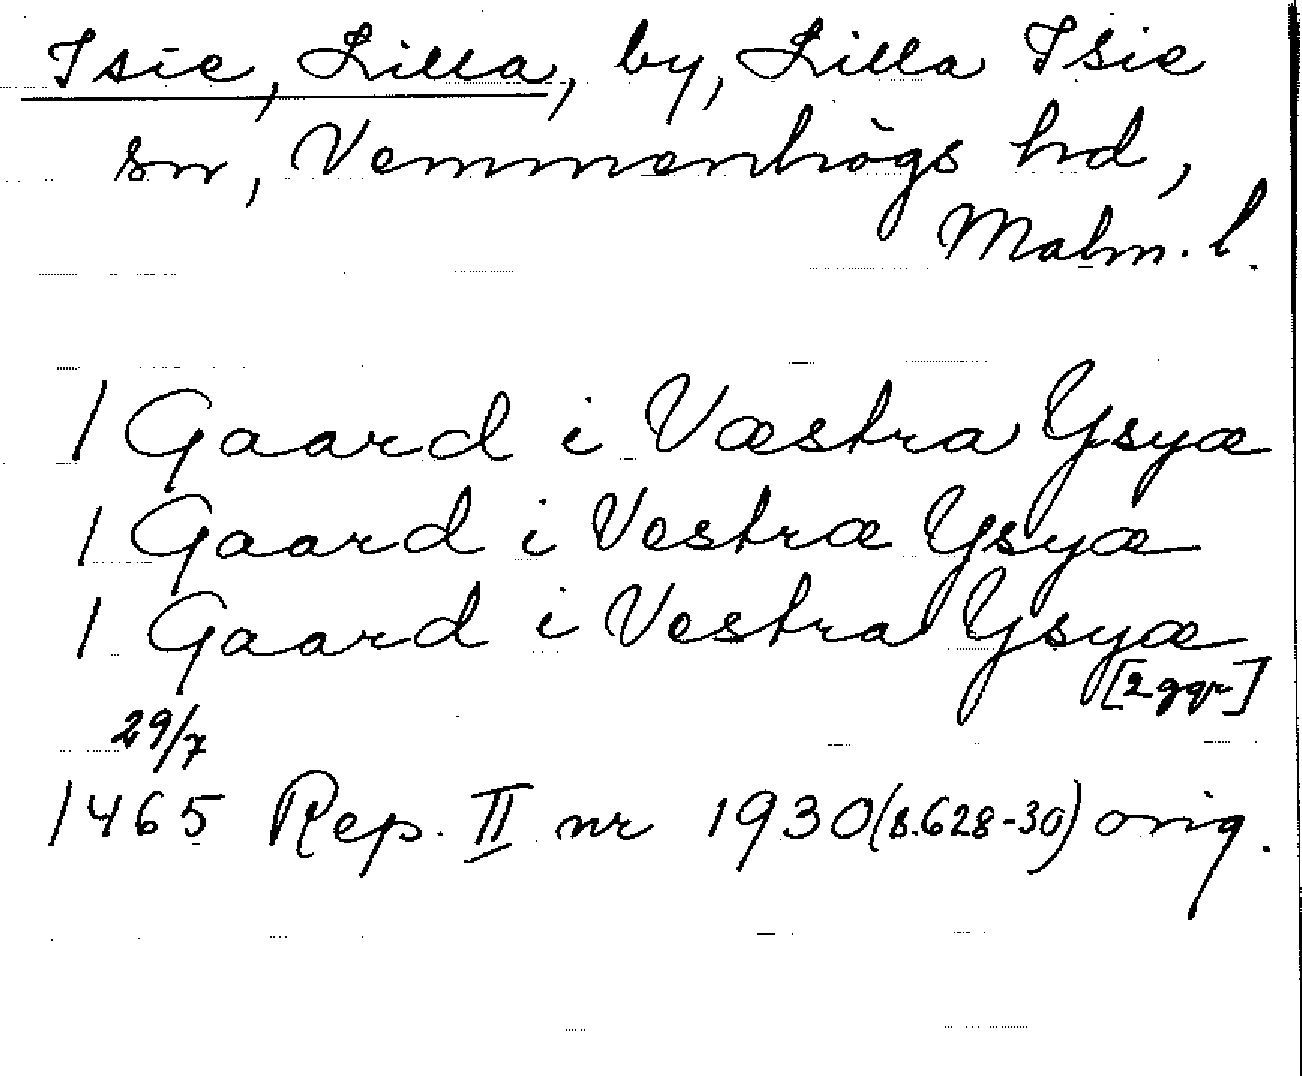 Isie, Lilla, by, Lilla Isie
sn, Vemmenhögs hd,
Malm. l.
1 Gaard i Væstra Ysyæ
1 Gaard i Vestræ Ysyæ
1 Gaard i Vestra Ysyæ
[2 ggr]
29/7
1465 Rep. II nr 1930 (s. 628-30) orig.